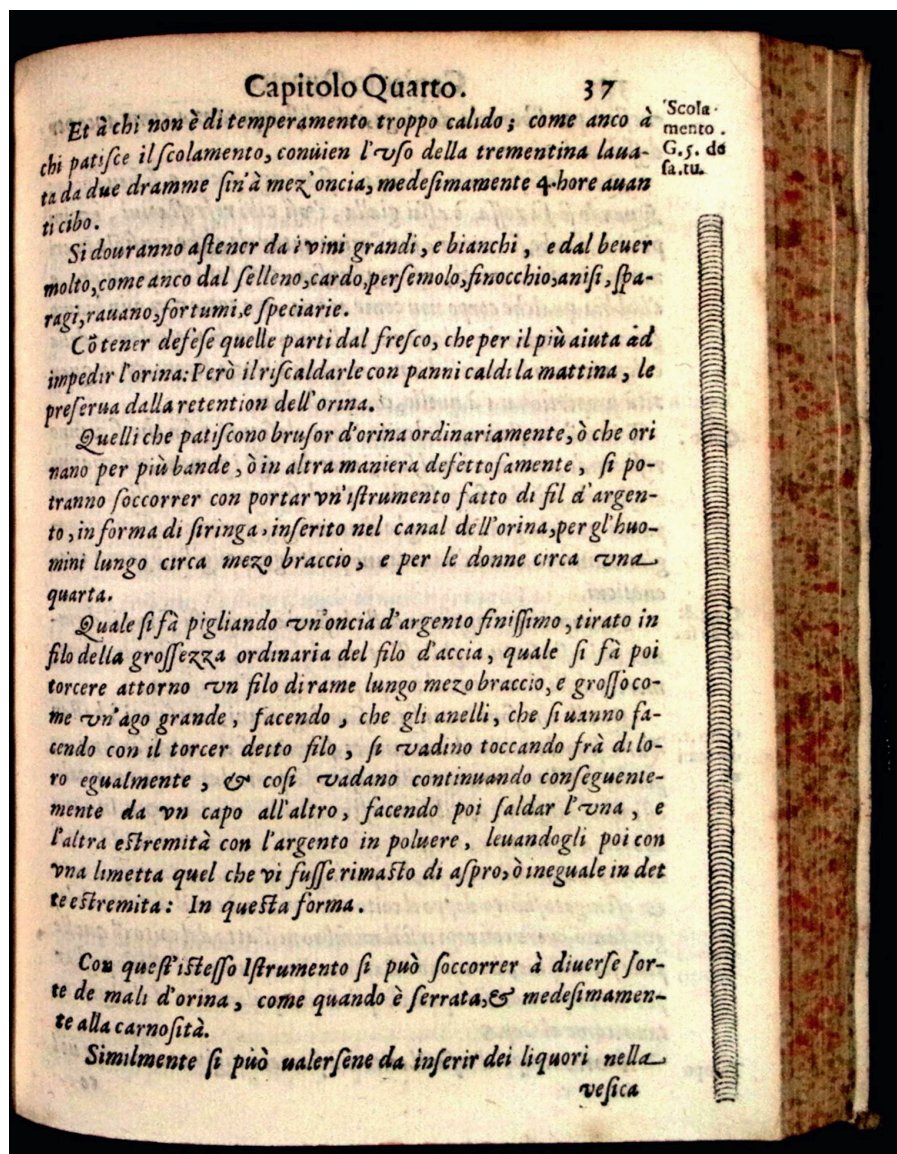 Capitolo Quarto. 37
Et à chi non è di temperamento troppo calido; come anco à
chi patiſce il ſcolamento, conuien l'vſo della trementina laua-
ta da due dramme ſin'à mez'oncia, medeſimamente 4. hore auan
ti cibo.
Si douranno aſtener da i vini grandi, e bianchi, e dal beuer
molto, come anco dal ſelleno, cardo, perſemolo, finocchio, aniſi, ſpa-
ragi, rauano, fortumi, e ſpeciarie.
Cõ tener defeſe quelle parti dal freſco, che per il più aiuta ad
impedir l'orina: Però il riſcaldarle con panni caldi la mattina, le
preſerua dalla retention dell'orina.
Quelli che patiſcono bruſor d'orina ordinariamente, ò che ori
nano per più bande, ò in altra maniera defettoſamente, ſi po-
tranno ſoccorrer con portar vn'iſtrumento fatto di fil d'argen-
to, in forma di ſiringa, inſerito nel canal dell'orina, per gl'huo-
mini lungo circa mezo braccio, e per le donne circa vna
quarta.
Quale ſi fà pigliando vn'oncia d'argento finiſſimo, tirato in
filo della groſſezza ordinaria del filo d'accia, quale ſi fà poi
torcere attorno vn filo di rame lungo mezo braccio, e groſſo co-
me vn'ago grande, facendo, che gli anelli, che ſi uanno fa-
cendo con il torcer detto filo, ſi vadino toccando frà di lo-
ro egualmente, & coſi vadano continuando conſeguente-
mente da vn capo all'altro, facendo poi ſaldar l'vna, e
l'altra eſtremità con l'argento in poluere, leuandogli poi con
vna limetta quel che vi fuſſe rimaſto di aſpro, ò ineguale in det
te eſtremita: In queſta forma.
Con queſt'iſteſſo Iſtrumento ſi può ſoccorrer à diuerſe ſor-
te de mali d'orina, come quando è ſerrata, & medeſimamen-
te alla carnoſità.
Similmente ſi può ualerſene da inſerir dei liquori nella
veſica
Scola-
mento.
G. 5. de
fa. tu.